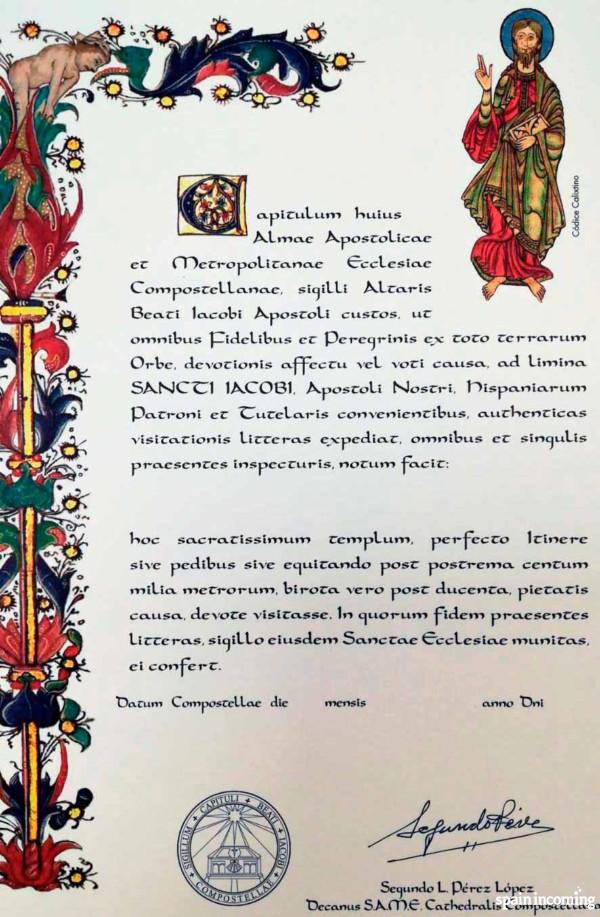 Capitulum huius
Almae Apostolicae
et Metropolitanae Ecclesiae
Compostellanae, sigilli Altaris
Beati Iacobi Apostoli custos, ut
omnibus Fidelibus et Peregrinis ex toto terrarum
Orbe, devotionis affectu vel voti causa, ad limina
SANCTI IACOBI, Apostoli Nostri, Hispaniarum
Patroni et Tutelaris convenientibus, authenticas
visitationis litteras expediat, omnibus et singulis
praesentes inspecturis, notum facit:
Códice Calixtino
hoc sacratissimum templum, perfecto Itinere
sive pedibus sive equitando post postrema centum
milia metrorum, birota vero post ducenta, pietatis
causa, devote visitasse. In quorum fidem praesentes
litteras, sigillo eiusdem Sanctae Ecclesiae munitas,
ei confert.
Datum Compostellae die mensis anno Dni
SIGILLUM CAPITULI BEATI IACOBI COMPOSTELLAE
Segundo Pérez
Segundo L. Pérez López
Decanus S.A.M.E. Cathedralis Compostellana
spain incoming